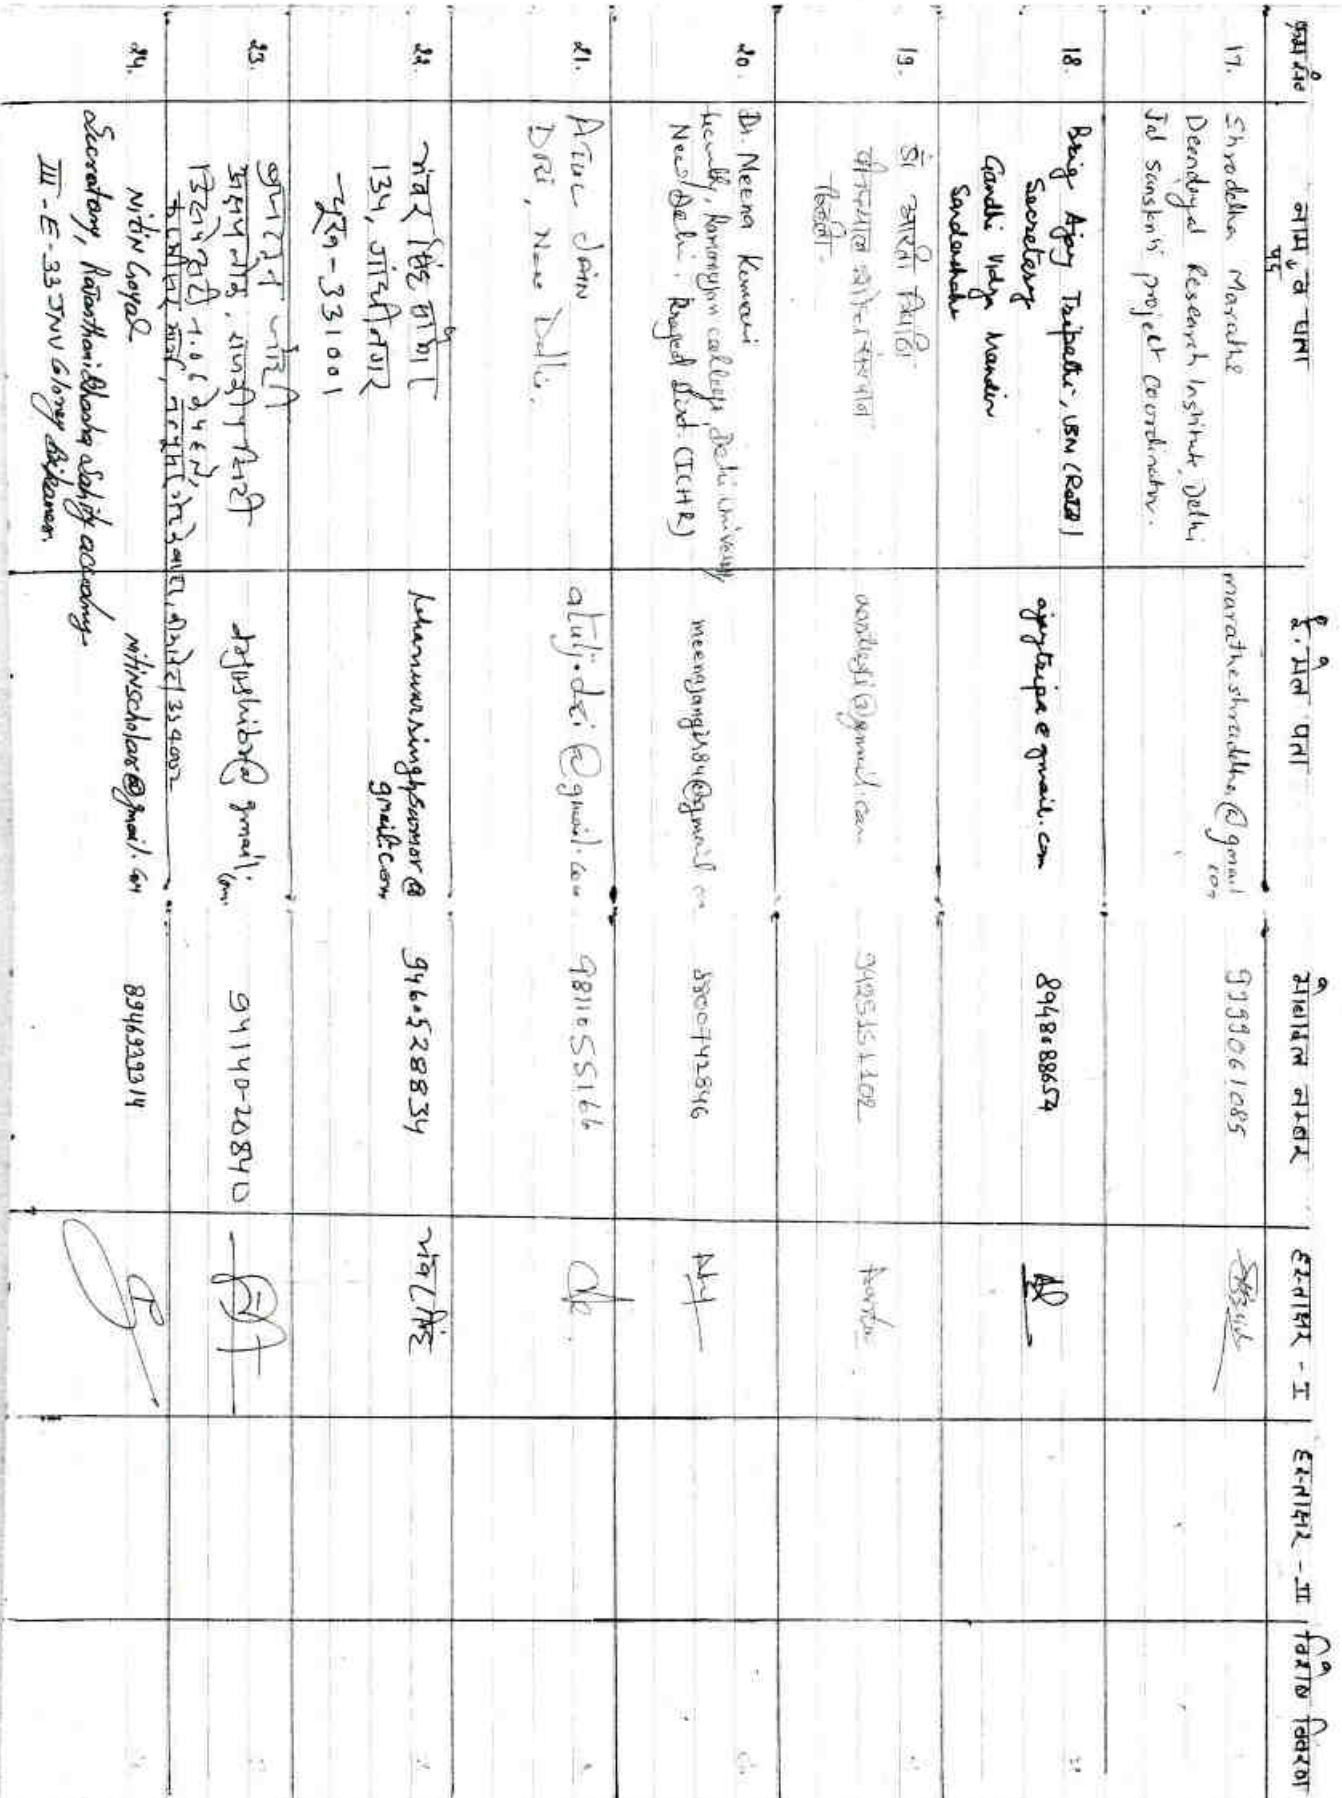 क्रम सं०
नाम, पद व पता
ई. मेल पता
मोबाईल नम्बर
हस्ताक्षर - I
हस्ताक्षर - II
विशेष विवरण
17.
Shraddha Marathe
Deendayal Research Institute, Delhi
Jal Sanskriti project coordinator.
maratheshraddha@gmail
com
9299061085
18.
Brig Ajay Tripathi, VSM (Retd)
Secretary
Gandhi Vidya Mandir
Sardarshahr
ajaytripa@gmail.com
8948088654
19.
डॉ आरती
दीनदयाल शोध संस्थान
दिल्ली
@gmail.com
9425151102
Aarti
20.
Dr. Meena Kumari
Faculty, Ramanujan college, Delhi University
New Delhi. Project Dirt. (ICHR)
meenajangir84@gmail
8800742846
21.
ATUL JAIN
DRI, New Delhi.
atulj.dri@gmail.com
9811055166
22.
भंवर सिंह
134, गांधीनगर
चूरू - 331001
bhanwarsinghsamor@
gmail.com
9460528834
भंवरसिंह
23.
@gmail.
com
94140-20840
334002
24.
Nitin Goyal
Secretary, Rajasthani Bhasha Sahity academy
III - E - 33 JNV Colony Bikaner
nitinscholar@gmail.com
8946939314